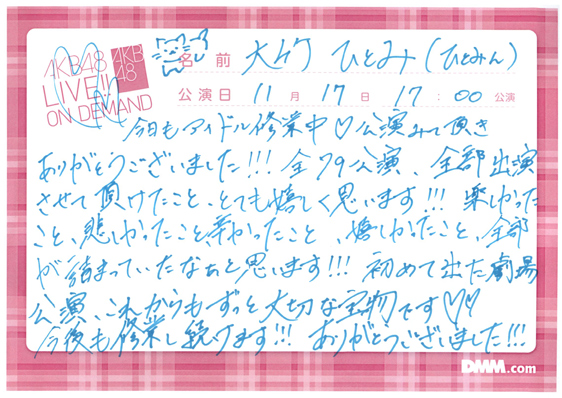 AKB48
LIVE!!
ON DEMAND
AKB
48
名前 大竹 ひとみ(ひとみん)
公演日 11月17日 17:00公演
今日もアイドル修業中♡公演みて頂き
ありがとうございました!!! 全79公演、全部出演
させて頂けたこと、とても嬉しく思います!!! 楽しかった
こと、悲しかったこと、辛かったこと、嬉しかったこと、全部
が詰まっていたなぁと思います!!! 初めて出た劇場
公演、これからもずっと大切な宝物です♡♡
今後も修業し続けます!!! ありがとうございました!!!
DMM.com